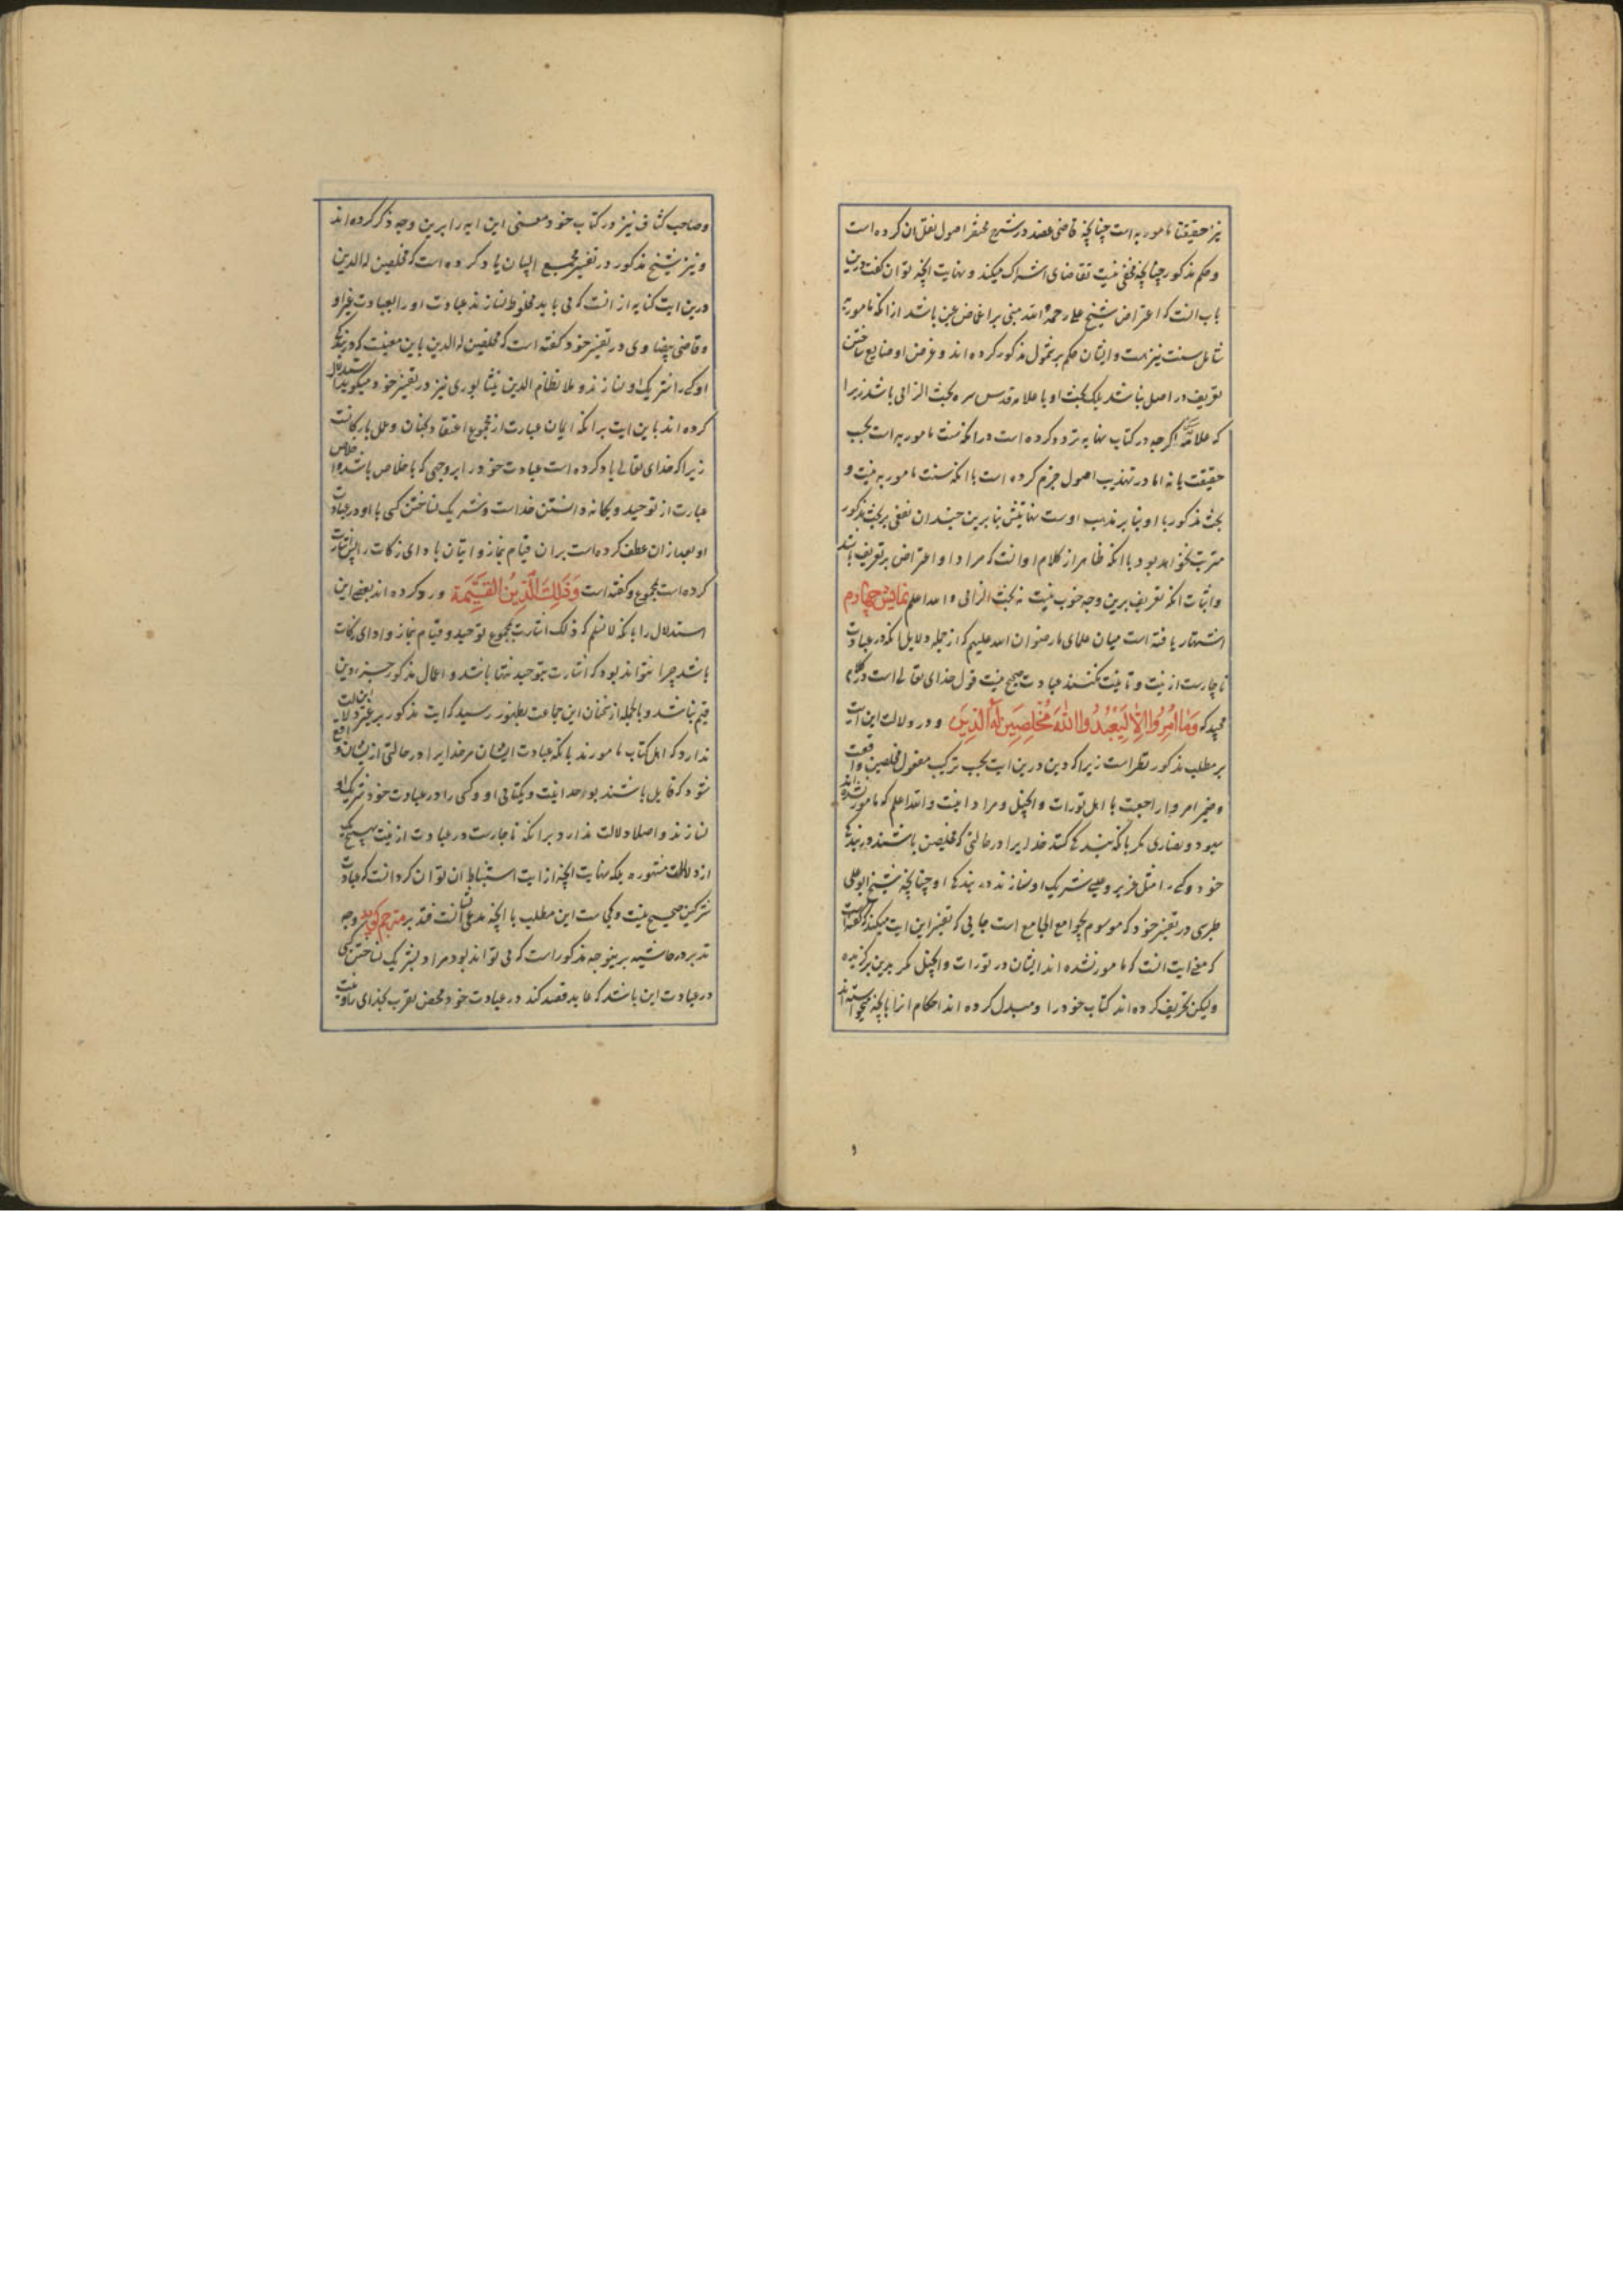 نیز حقیقتا مامور به است چنانچه قاضی عضد در شرح مختصر اصول نقل آن کرده است
و حکم مذکور چنانچه مخفی نیست تقاضای اشتراک میکند و نهایت آنچه توان گفت درین
باب آنست که اعتراض شیخ علی رحمه الله مبنی بر اغماض عین باشد از آنکه مامور به
شامل سنت نیز هست و ایشان حکم بر شمول مذکور کرده اند و غرض او ضایع ساختن
تعریف در اصل نباشد بلکه بحث او با علامه قدس سره بحث الزامی باشد زیرا
که علامه اگرچه در کتاب نهایه تردد کرده است در آنکه سنت مامور به است بحسب
حقیقت یا نه اما در تهذیب اصول جزم کرده است با آنکه سنت مامور به نیست و
بحث مذکور با او بنا بر مذهب اوست نهایتش بنا برین چندان نفعی بر بحث مذکور
مترتب نخواهد بود با آنکه ظاهر از کلام او آنست که مراد او اعتراض بر تعریف باشد
و اثبات آنکه تعریف برین وجه خوب نیست نه بحث الزامی والله اعلم نمایش چهارم
اشتهار یافته است میان علمای ما رضوان الله علیهم که از جمله دلایل آنکه در عبادت
ناچارست از نیت و تا نیت نکنند عبادت صحیح نیست قول خدای تعالی است در کلام
مجید که وَمَا أُمِرُوا إِلَّا لِيَعْبُدُوا اللَّهَ مُخْلِصِينَ لَهُ الدِّينَ و در دلالت این آیت
بر مطلب مذکور نظر است زیرا که دین درین آیت بحسب ترکیب مفعول مخلصین واقعست
و ضمیر امروا راجعست با اهل تورات و انجیل و مراد اینست والله اعلم که مامور نشده اند
یهود و نصاری مگر بآنکه بندگی کنند خدایرا در حالتی که مخلصین باشند در بندگی
خود و کسی را مثل عزیر و عیسی شریک او نسازند در بندگی او چنانچه شیخ ابو علی
طبرسی در تفسیر خود که موسوم بجوامع الجامع است جایی که تفسیر این آیت میکند گفته است
که معنی آیت آنست که مامور نشده اند ایشان در تورات و انجیل مگر بدین برگزیده
ولیکن تحریف کرده اند کتاب خود را و مبدل کرده اند احکام آنرا بآنچه میخواسته اند
و صاحب کشاف نیز در کتاب خود معنی این آیه را برین وجه ذکر کرده اند
و نیز شیخ مذکور در تفسیر مجمع البیان یاد کرده است که مخلصین له الدین
درین آیت کنایه از آنست که می باید مخلوط نسازند عبادت او را بعبادت غیر او
و قاضی بیضاوی در تفسیر خود گفته است که مخلصین له الدین باین معنیست که در بندگی
او کسی را شریک او نسازند و ملا نظام الدین نیشابوری نیز در تفسیر خود میگوید استدلال
کرده اند باین آیت بر آنکه ایمان عبارت از مجموع اعتقاد بجنان و عمل بارکانست
زیرا که خدای تعالی یاد کرده است عبادت خود را بر وجهی که با اخلاص باشد و اخلاص
عبارت از توحید و یگانه دانستن خداست و شریک نساختن کسی با او در عبادت
او بعد از آن عطف کرده است بر آن قیام نماز و اتیان بادای زکات را پس اشارت
کرده است بمجموع و گفته است وَذَلِكَ الدِّينُ الْقَيِّمَة و رد کرده اند بعضی این
استدلال را بآنکه لا نسلم که ذلک اشارت بمجموع توحید و قیام نماز و ادای زکات
باشد چرا نتواند بود که اشارت بتوحید تنها باشد و اعمال مذکور جزء دین
قیم نباشد و بالجمله از سخنان این جماعت بظهور رسید که آیت مذکور بر غیر این دلالت
ندارد که اهل کتاب مامورند بآنکه عبادت ایشان مر خدایرا در حالتی از ایشان واقع
شود که قایل باشند بواحدانیت و یکتایی او و کسی را در عبادت خود شریک او
نسازند و اصلا دلالت ندارد بر آنکه ناچارست در عبادت از نیت بهیچ یک
از دلالات مشهوره بلکه نهایت آنچه از آیت استنباط آن توان کرد آنست که عبادت
مشرکین صحیح نیست و کجاست این مطلب با آنچه مدعای ایشان آنست فتدبر مترجم گوید وجه
تدبر در حاشیه برینوجه مذکور است که می تواند بود مراد بشریک نساختن کسی
در عبادت این باشد که عابد قصد کند در عبادت خود محض تقرب بخدای را و نیت